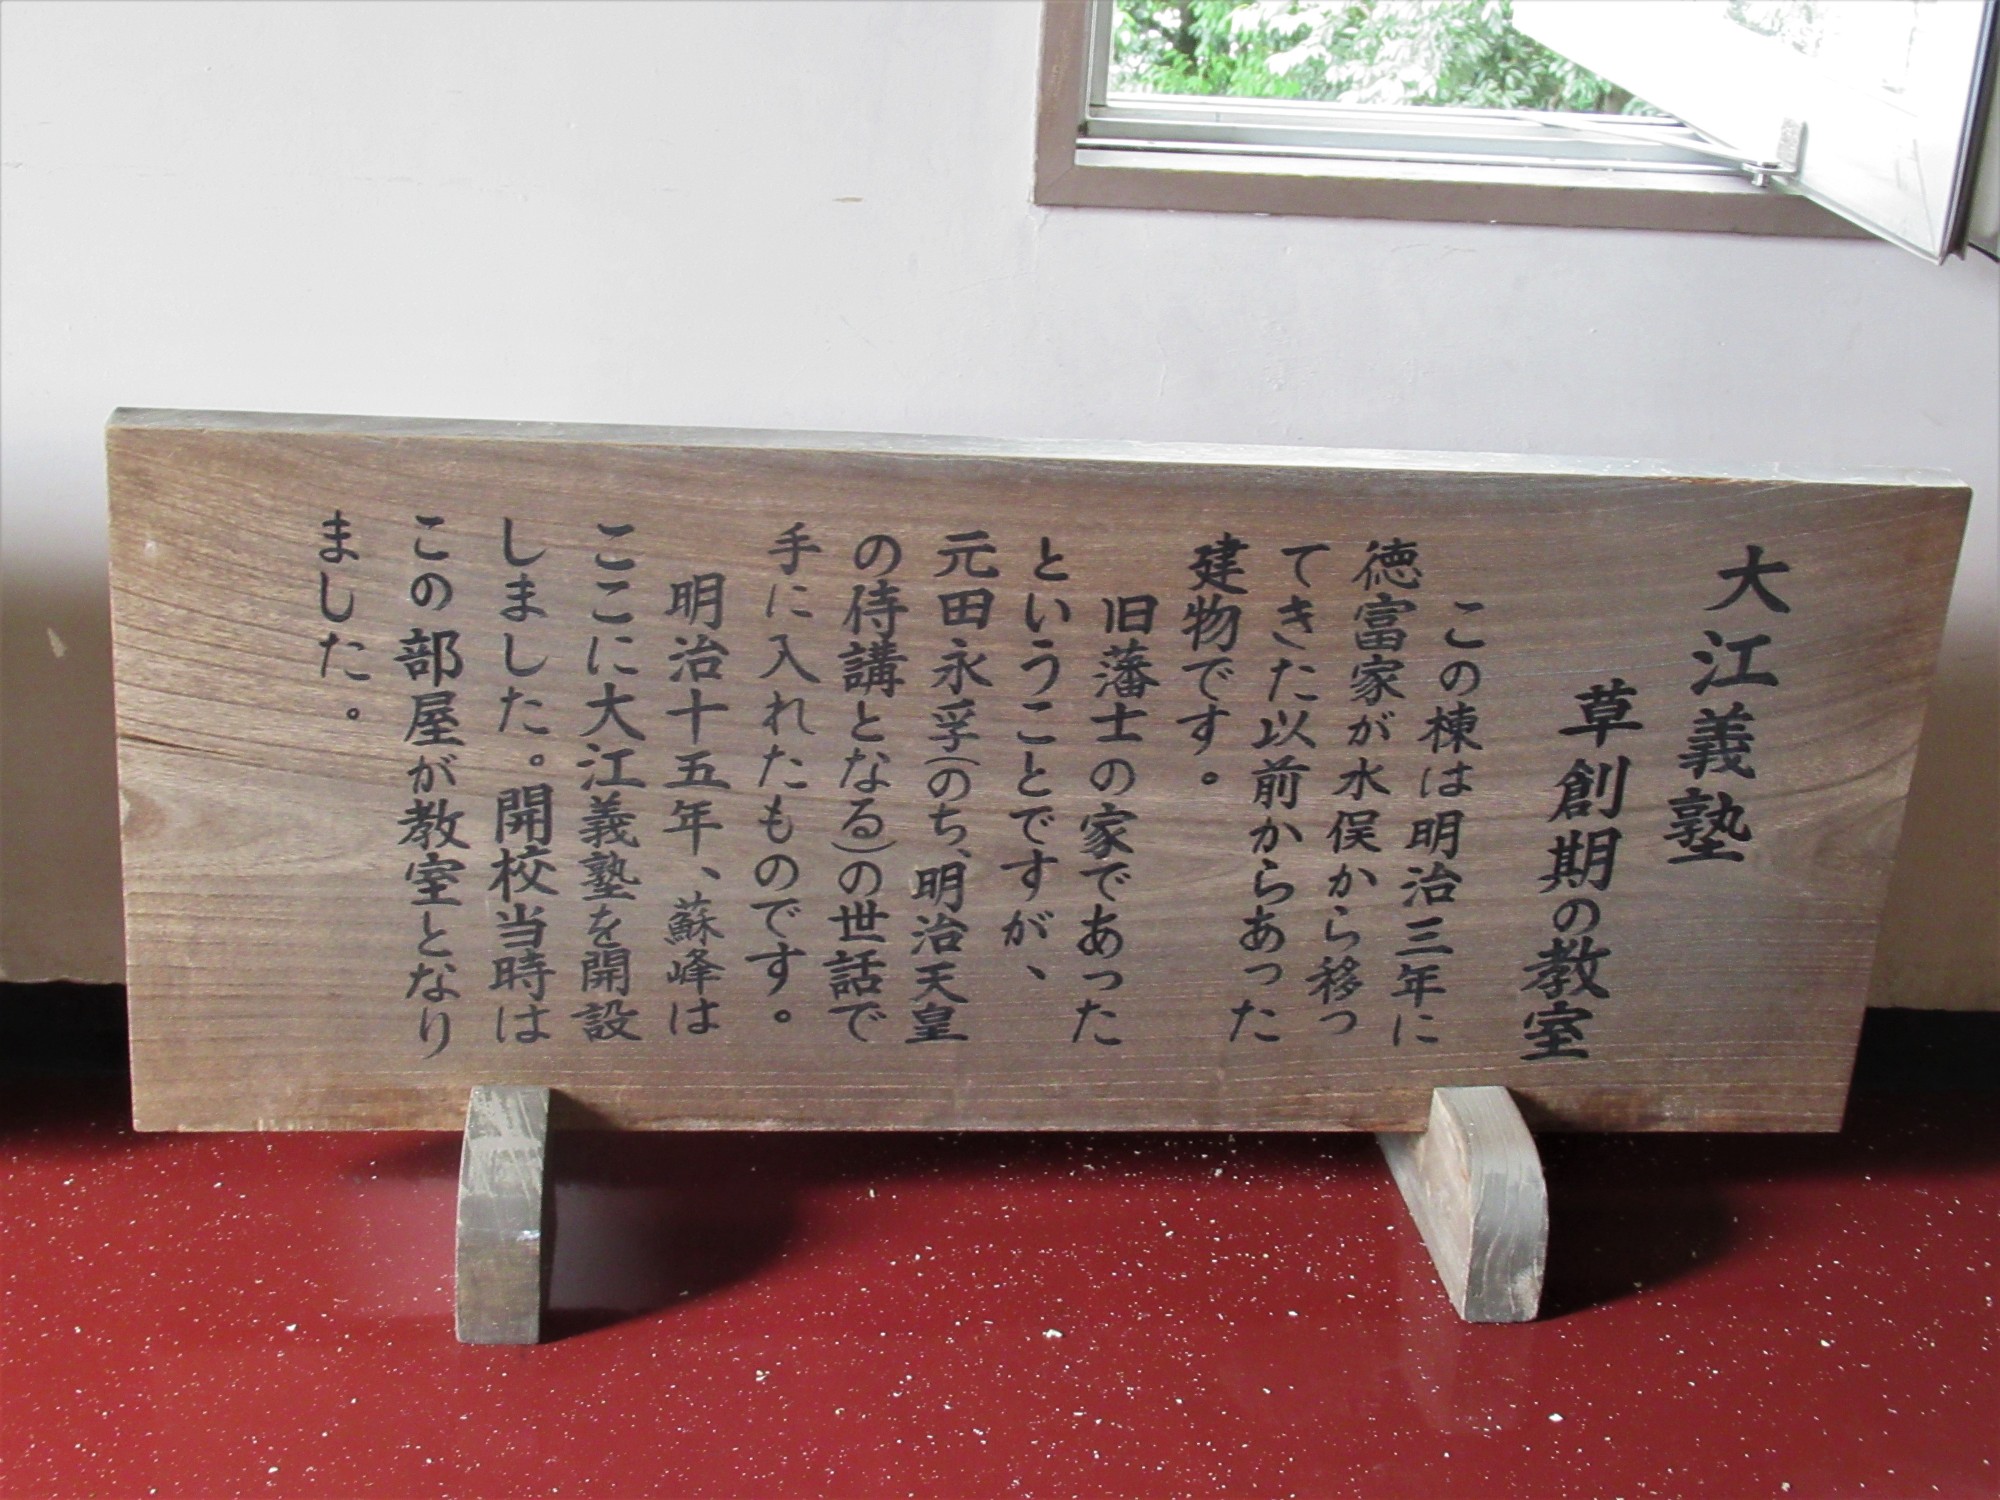 大江義塾
草創期の教室
この棟は明治三年に
徳富家が水俣から移っ
てきた以前からあった
建物です。
旧藩士の家であった
ということですが、
元田永孚(のち、明治天皇
の侍講となる)の世話で
手に入れたものです。
明治十五年、蘇峰は
ここに大江義塾を開設
しました。開校当時は
この部屋が教室となり
ました。